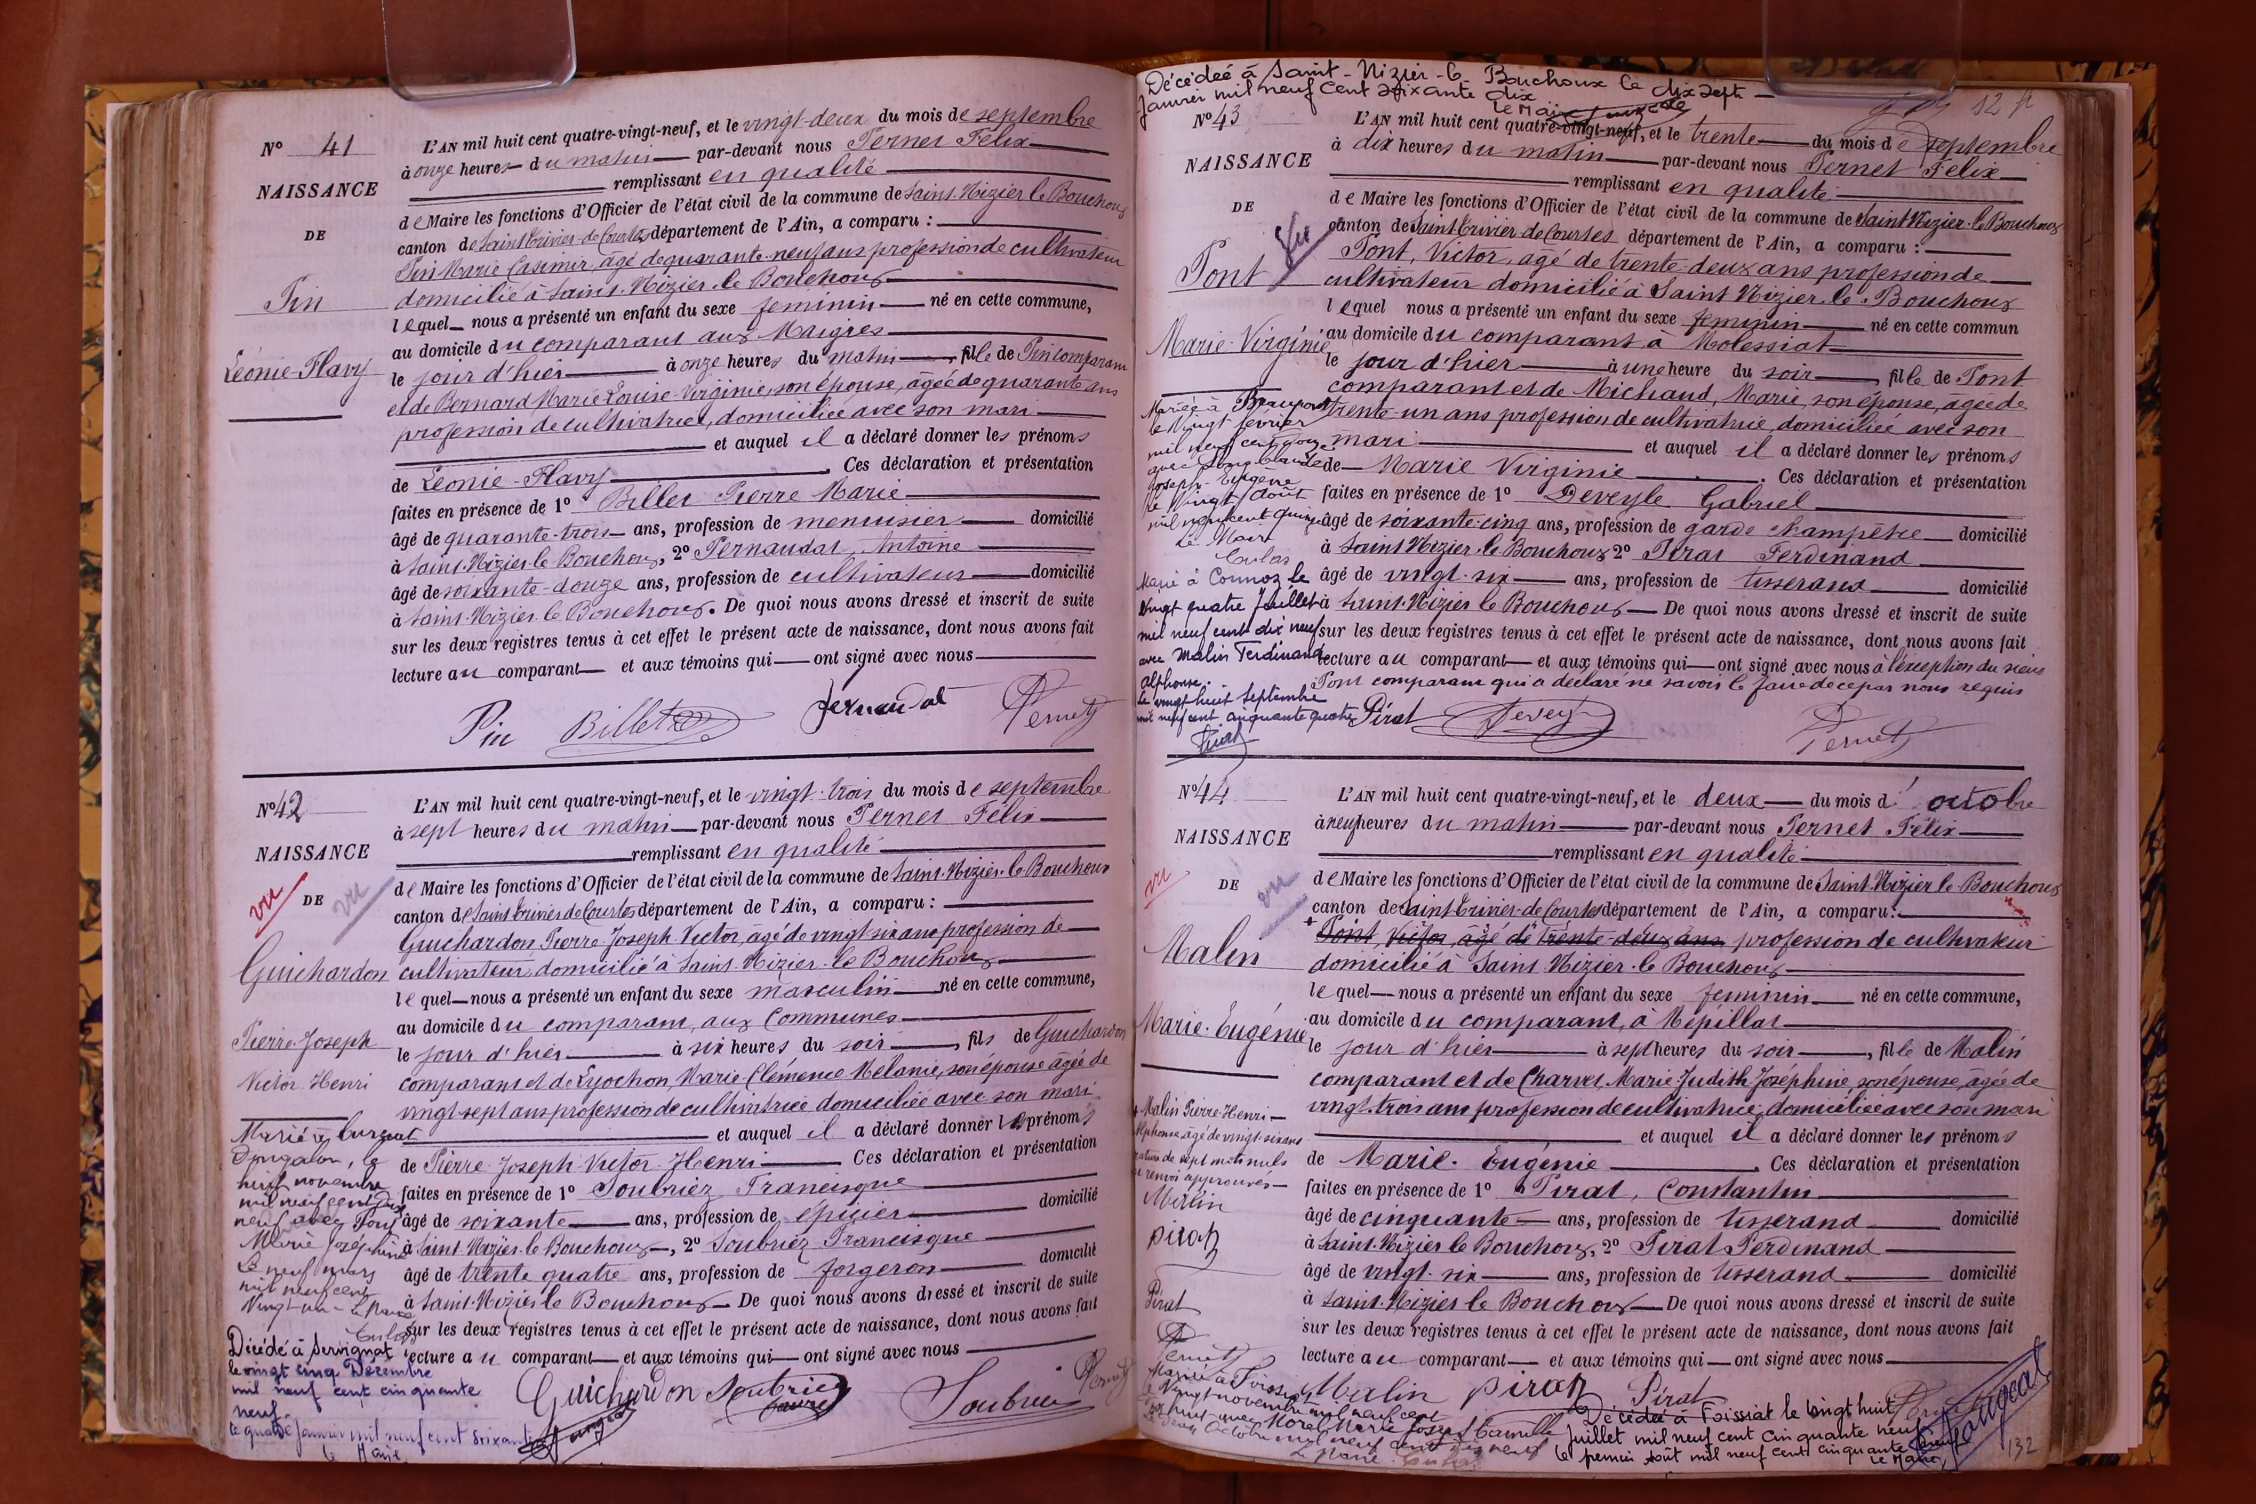 N° 41
NAISSANCE
DE
Pin
Léonie Flavy
L'AN mil huit cent quatre-vingt-neuf, et le vingt-deux du mois de septembre
à onze heures du matin par-devant nous Pernet Félix
remplissant en qualité
de Maire les fonctions d'Officier de l'état civil de la commune de Saint-Nizier le Bouchoux
canton de Saint Trivier-de-Courtes département de l'Ain, a comparu :
Pin Marie Casimir, âgé de quarante-neuf ans profession de cultivateur
domicilié à Saint-Nizier-le Bouchoux
lequel nous a présenté un enfant du sexe féminin né en cette commune,
au domicile du comparant aux Maigres
le jour d'hier à onze heures du matin, fille de Pin comparant
et de Bernard Marie Louise Virginie, son épouse, âgée de quarante ans
profession de cultivatrice, domiciliée avec son mari
et auquel il a déclaré donner les prénoms
de Léonie-Flavy Ces déclaration et présentation
faites en présence de 1° Billet Pierre Marie
âgé de quarante-trois ans, profession de menuisier domicilié
à Saint-Nizier le Bouchoux, 2° Pernaudat, Antoine
âgé de soixante-douze ans, profession de cultivateur domicilié
à Saint-Nizier-le Bouchoux. De quoi nous avons dressé et inscrit de suite
sur les deux registres tenus à cet effet le présent acte de naissance, dont nous avons fait
lecture au comparant et aux témoins qui ont signé avec nous
Pin Billet Pernaudat Pernet
N° 42
NAISSANCE
DE
vu vu
Guichardon
Pierre-Joseph
Victor Henri
L'AN mil huit cent quatre-vingt-neuf, et le vingt-trois du mois de septembre
à sept heures du matin par-devant nous Pernet Félix
remplissant en qualité
de Maire les fonctions d'Officier de l'état civil de la commune de Saint-Nizier-le Bouchoux
canton de Saint Trivier de Courtes département de l'Ain, a comparu :
Guichardon Pierre Joseph Victor, âgé de vingt six ans profession de
cultivateur domicilié à Saint-Nizier-le Bouchoux
lequel nous a présenté un enfant du sexe masculin né en cette commune,
au domicile du comparant, aux Communes
le jour d'hier à six heures du soir, fils de Guichardon
comparant et de Lyochon, Marie Clémence Mélanie, son épouse âgée de
vingt-sept ans profession de cultivatrice domiciliée avec son mari
et auquel il a déclaré donner les prénoms
de Pierre-Joseph Victor Henri Ces déclaration et présentation
faites en présence de 1° Soubriez Francisque
âgé de soixante ans, profession de épicier domicilié
à Saint-Nizier le Bouchoux, 2° Soubriez Francisque
âgé de trente quatre ans, profession de forgeron domicilié
à Saint-Nizier le Bouchoux De quoi nous avons dressé et inscrit de suite
sur les deux registres tenus à cet effet le présent acte de naissance, dont nous avons fait
lecture au comparant et aux témoins qui ont signé avec nous
Guichardon Soubriez Soubriez Pernet
Marié à Curciat
Dongalon, le
huit novembre
mil neuf cent dix
neuf avec Pont
Marie Joséphine
Le neuf mars
mil neuf cent
Vingt-un - Le Maire
Décédé à Servignat
le vingt cinq Décembre
mil neuf cent cinquante
neuf.
le quatre Janvier mil neuf cent soixante
le Maire
Décédée à Saint-Nizier-le-Bouchoux le dix sept
Janvier mil neuf cent soixante dix
Le Maire
N° 43
NAISSANCE
DE
Vu
Pont
Marie-Virginie
L'AN mil huit cent quatre-vingt-neuf, et le trente du mois de septembre
à dix heures du matin par-devant nous Pernet Félix
remplissant en qualité
de Maire les fonctions d'Officier de l'état civil de la commune de Saint Nizier-le Bouchoux
canton de Saint Trivier de Courtes département de l'Ain, a comparu :
Pont, Victor, âgé de trente-deux ans profession de
cultivateur domicilié à Saint Nizier-le-Bouchoux
lequel nous a présenté un enfant du sexe féminin né en cette commun
au domicile du comparant à Molessiat
le jour d'hier à une heure du soir, fille de Pont
comparant et de Michaud, Marie, son épouse, âgée de
trente-un ans profession de cultivatrice, domiciliée avec son
mari et auquel il a déclaré donner les prénoms
de Marie Virginie Ces déclaration et présentation
faites en présence de 1° Deveyle Gabriel
âgé de soixante-cinq ans, profession de garde champêtre domicilié
à Saint Nizier-le Bouchoux 2° Pirat Ferdinand
âgé de vingt-six ans, profession de tisserand domicilié
à Saint-Nizier le Bouchoux De quoi nous avons dressé et inscrit de suite
sur les deux registres tenus à cet effet le présent acte de naissance, dont nous avons fait
lecture au comparant et aux témoins qui ont signé avec nous à l'exception du sieur
Pont comparant qui a déclaré ne savoir le faire de ce par nous requis
Pirat Deveyle Pernet
Mariée à Beaupont
le Vingt février
mil neuf cent
avec
Joseph-Eugène
le Vingt Août
mil neuf cent quinze
Le Maire
Marié à Connoz le
Vingt quatre Juillet
mil neuf cent dix neuf
avec Malin Ferdinand
Alphonse.
Le vingt huit Septembre
mil neuf cent cinquante quatre
Pirat
N° 44
NAISSANCE
DE
vu vu
Malin
Marie-Eugénie
L'AN mil huit cent quatre-vingt-neuf, et le deux du mois d'octobre
à neuf heures du matin par-devant nous Pernet Félix
remplissant en qualité
de Maire les fonctions d'Officier de l'état civil de la commune de Saint-Nizier le Bouchoux
canton de Saint Trivier-de-Courtes département de l'Ain, a comparu :
+ Pont, Victor, âgé de trente-deux ans profession de cultivateur
domicilié à Saint Nizier-le Bouchoux
lequel nous a présenté un enfant du sexe féminin né en cette commune,
au domicile du comparant, à Népillat
le jour d'hier à sept heures du soir, fille de Malin
comparant et de Charvet Marie-Judith Joséphine, son épouse, âgée de
vingt-trois ans profession de cultivatrice, domiciliée avec son mari
et auquel il a déclaré donner les prénoms
de Marie-Eugénie Ces déclaration et présentation
faites en présence de 1° Pirat, Constantin
âgé de cinquante ans, profession de tisserand domicilié
à Saint-Nizier le Bouchoux, 2° Pirat Ferdinand
âgé de vingt-six ans, profession de tisserand domicilié
à Saint-Nizier le Bouchoux De quoi nous avons dressé et inscrit de suite
sur les deux registres tenus à cet effet le présent acte de naissance, dont nous avons fait
lecture au comparant et aux témoins qui ont signé avec nous
Malin Pirat Pirat Pernet
+ Malin Pierre-Henri
Alphonse, âgé de vingt-six ans
rature de sept mots nuls
et renvoi approuvés
Malin
Pirat
Pirat
Pernet
Mariée à Foissiat
le Vingt novembre mil neuf cent
huit avec Morel Marie Joseph Camille
octobre mil neuf cent dix neuf
Le Maire
Décédée à Foissiat le vingt huit
Juillet mil neuf cent cinquante neuf
le premier Août mil neuf cent cinquante neuf
Le Maire,
132